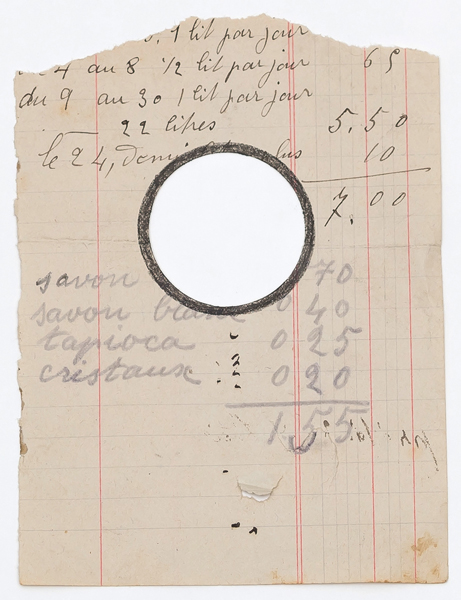 1 lit par jour
4 au 8 1/2 lit par jour 65
du 9 au 30 1 lit par jour
22 litres 5.50
le 24, 10
7.00
savon 70
savon blanc 0 40
tapioca 0 25
cristaux 0 20
1 55